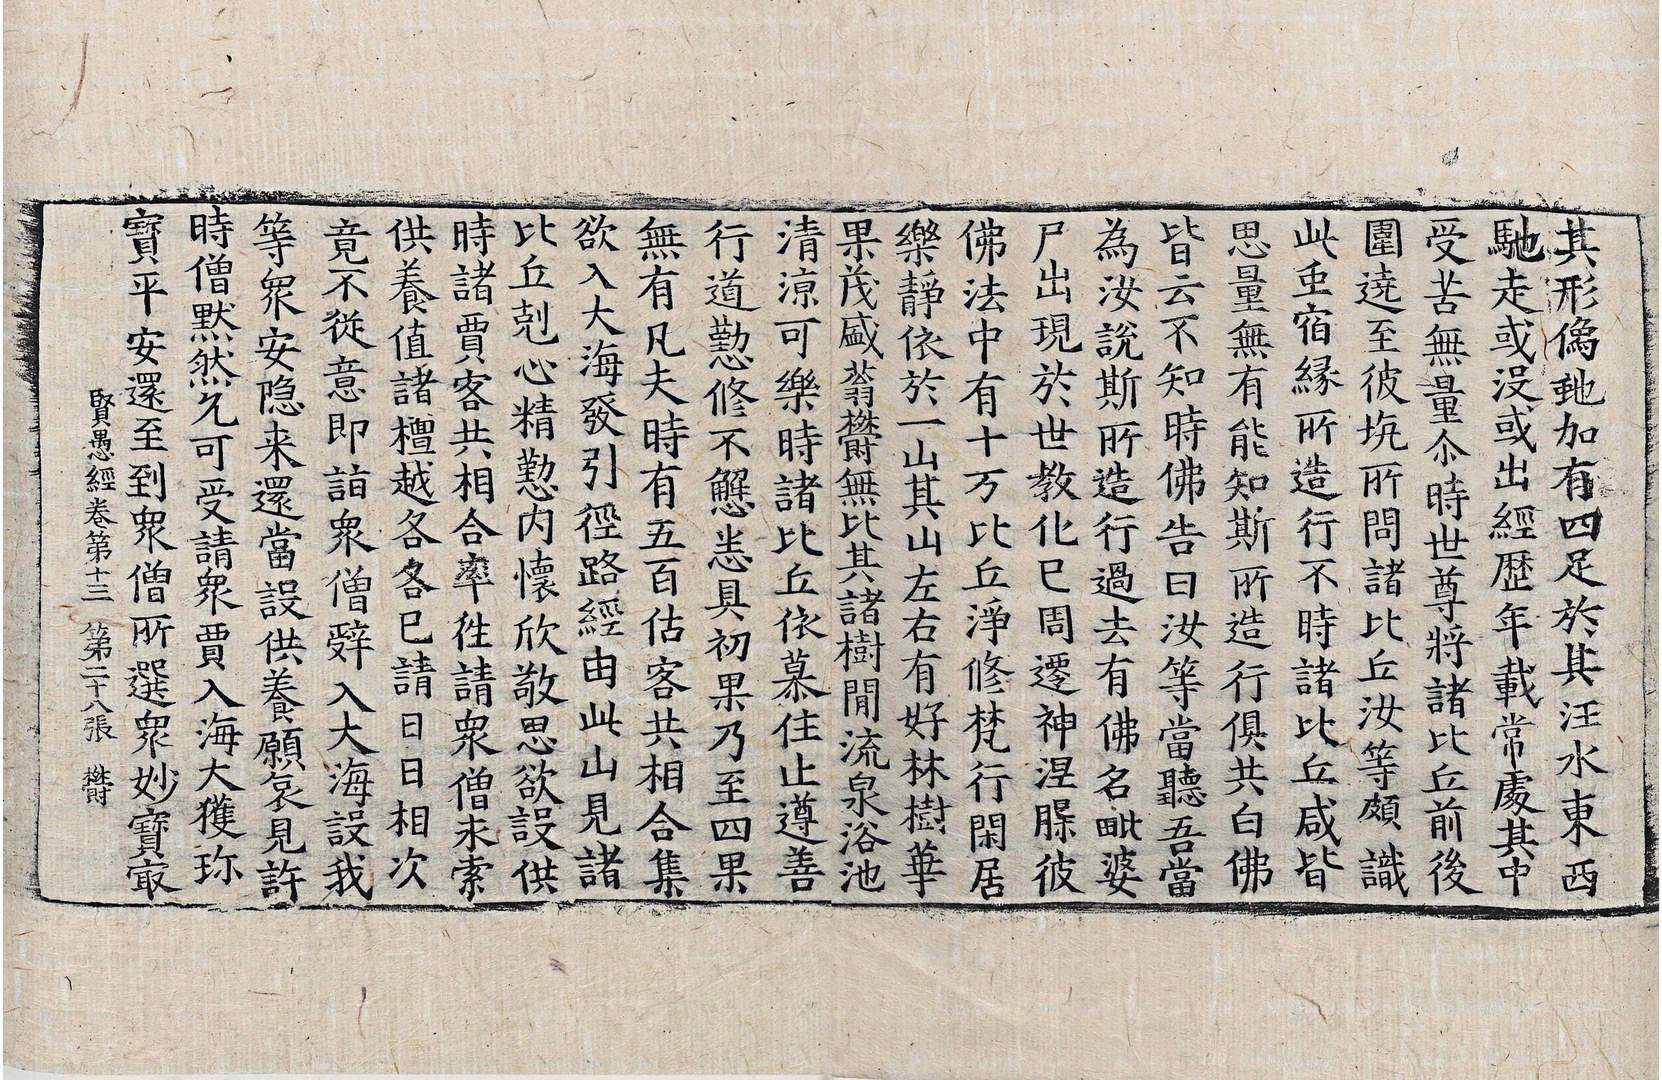 其形像虵加有四足於其汪水東西
馳走或没或出經歷年載常處其中
受苦無量尒時世尊將諸比丘前後
圍遶至彼坑所問諸比丘汝等頗識
此虫宿緣所造行不時諸比丘咸皆
思量無有能知斯所造行俱共白佛
皆云不知時佛告曰汝等當聽吾當
為汝說斯所造行過去有佛名毗婆
尸出現於世教化已周遷神涅槃彼
佛法中有十万比丘淨修梵行閑居
樂靜依於一山其山左右有好林樹華
果茂盛蓊欝無比其諸樹間流泉浴池
清涼可樂時諸比丘依慕住止遵善
行道懃修不懈悉具初果乃至四果
無有凡夫時有五百估客共相合集
欲入大海發引徑路經由此山見諸
比丘剋心精懃内懷欣敬思欲設供
時諸賈客共相合率徃請衆僧求索
供養值諸檀越各各已請日日相次
竟不從意即詣衆僧辭入大海設我
等衆安隐来還當設供養願哀見許
時僧默然允可受請衆賈入海大獲珎
寶平安還至到衆僧所選衆妙寶㝡
賢愚經卷第十三　第二十八張　欝